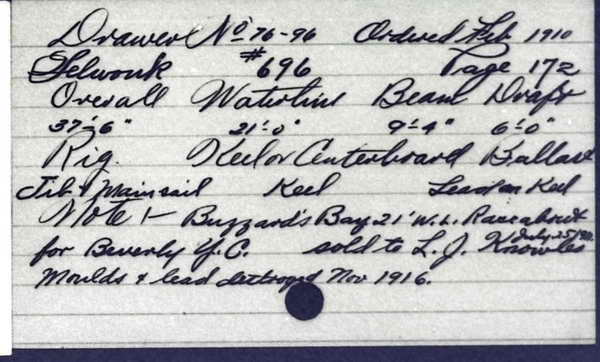 Drawer No 76-96 Ordered Feb 1910
Selwonk #696 Page 172
Overall Waterline Beam Draft
37'-6" 21'-0" 9'-4" 6'-0"
Rig. Keel or Centerboard Ballast
Jib & Mainsail Keel Lead on Keel
Note:- Buzzard's Bay 21' W.L. Raceabout
for Beverly Y.C. sold to L. J. Knowles July 25
Moulds & lead destroyed Nov 1916.